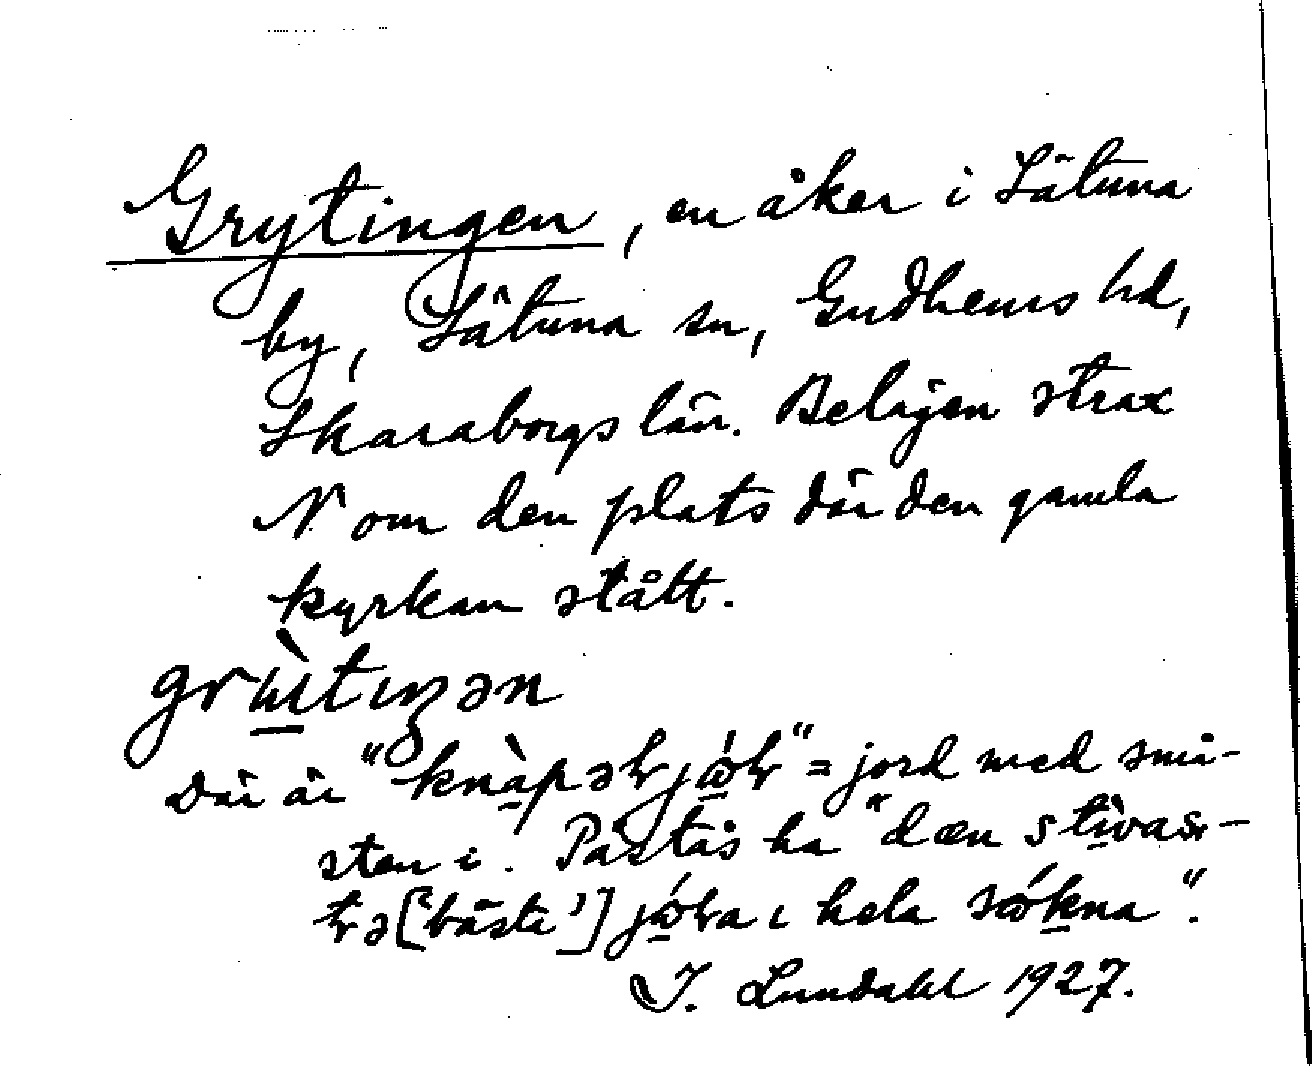 Grytingen, en åker i Lätuna
by, Sätuna sn, Gudhems hd,
Skaraborgs län. Belägen strax
N om den plats där den gamla
kyrkan stått.
Där är "knàpər jǿr" = jord med små-
sten i. Påstås ha "dæn stìvas-
tə ['bäste'] jǿra ı hela sǿkna".
I. Lundahl 1927.